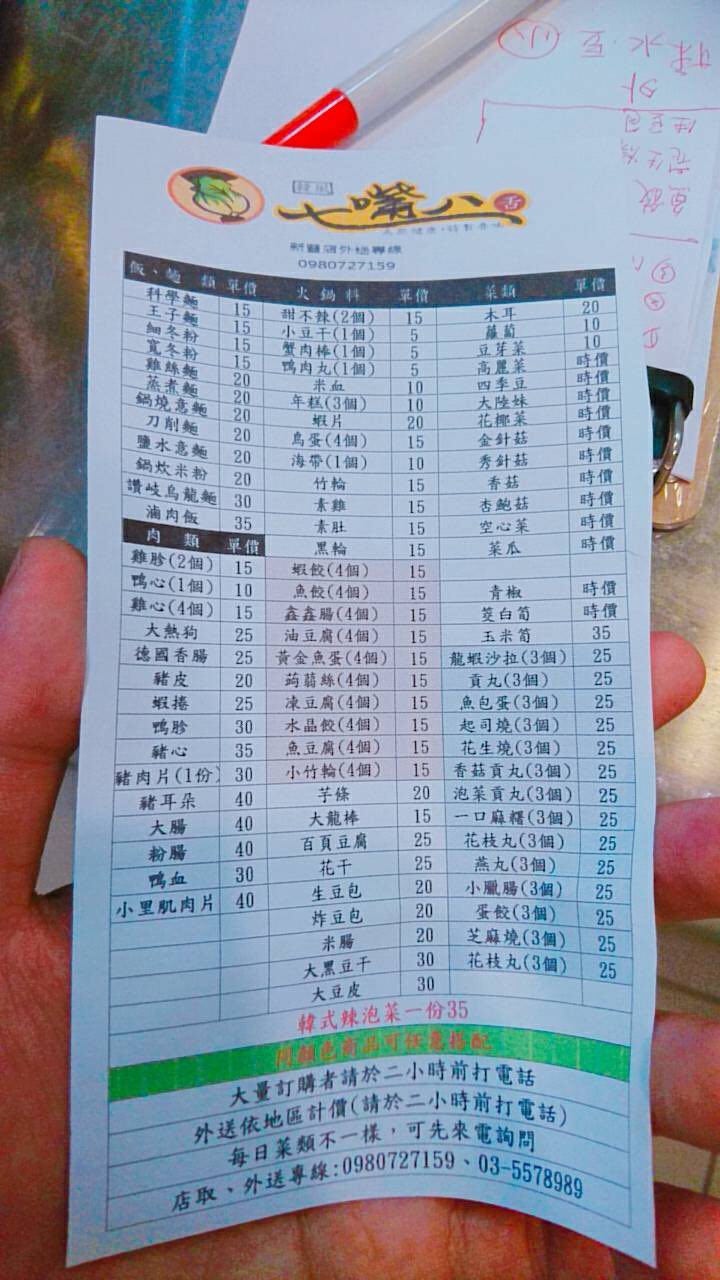 韓風
七嘴八舌
新豐店外送專線
0980727159
飯、麵 類 單價
科學麵 15
王子麵 15
細冬粉 15
寬冬粉 15
雞絲麵 20
蒸煮麵 20
鍋燒意麵 20
刀削麵 20
鹽水意麵 20
鍋炊米粉 20
讚岐烏龍麵 30
滷肉飯 35
肉 類 單價
雞胗(2個) 15
鴨心(1個) 10
雞心(4個) 15
大熱狗 25
德國香腸 25
豬皮 20
蝦捲 25
鴨胗 30
豬心 35
豬肉片(1份) 30
豬耳朵 40
大腸 40
粉腸 40
鴨血 30
小里肌肉片 40
火 鍋 料 單價
甜不辣(2個) 15
小豆干(1個) 5
蟹肉棒(1個) 5
鴨肉丸(1個) 5
米血 10
年糕(3個) 10
蝦片 20
鳥蛋(4個) 15
海帶(1個) 10
竹輪 15
素雞 15
素肚 15
黑輪 15
蝦餃(4個) 15
魚餃(4個) 15
鑫鑫腸(4個) 15
油豆腐(4個) 15
黃金魚蛋(4個) 15
蒟蒻絲(4個) 15
凍豆腐(4個) 15
水晶餃(4個) 15
魚豆腐(4個) 15
小竹輪(4個) 15
芋條 20
大龍棒 15
百頁豆腐 25
花干 25
生豆包 20
炸豆包 20
米腸 20
大黑豆干 30
大豆皮 30
菜類 單價
木耳 20
蘿蔔 10
豆芽菜 10
高麗菜 時價
四季豆 時價
大陸妹 時價
花椰菜 時價
金針菇 時價
秀針菇 時價
香菇 時價
杏鮑菇 時價
空心菜 時價
菜瓜 時價
青椒 時價
筊白筍 時價
玉米筍 35
龍蝦沙拉(3個) 25
貢丸(3個) 25
魚包蛋(3個) 25
起司燒(3個) 25
花生燒(3個) 25
香菇貢丸(3個) 25
泡菜貢丸(3個) 25
一口麻糬(3個) 25
花枝丸(3個) 25
燕丸(3個) 25
小臘腸(3個) 25
蛋餃(3個) 25
芝麻燒(3個) 25
花枝丸(3個) 25
韓式辣泡菜一份35
同顏色商品可任意搭配
大量訂購者請於二小時前打電話
外送依地區計價(請於二小時前打電話)
每日菜類不一樣，可先來電詢問
店取、外送專線:0980727159、03-5578989